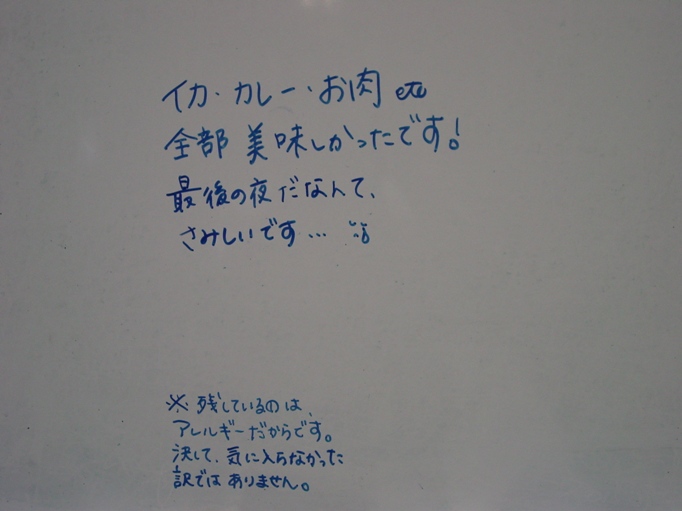 イカ・カレー・お肉 etc
全部 美味しかったです!
最後の夜だなんて、
さみしいです…
※ 残しているのは、
アレルギーだからです。
決して、気に入らなかった
訳ではありません。